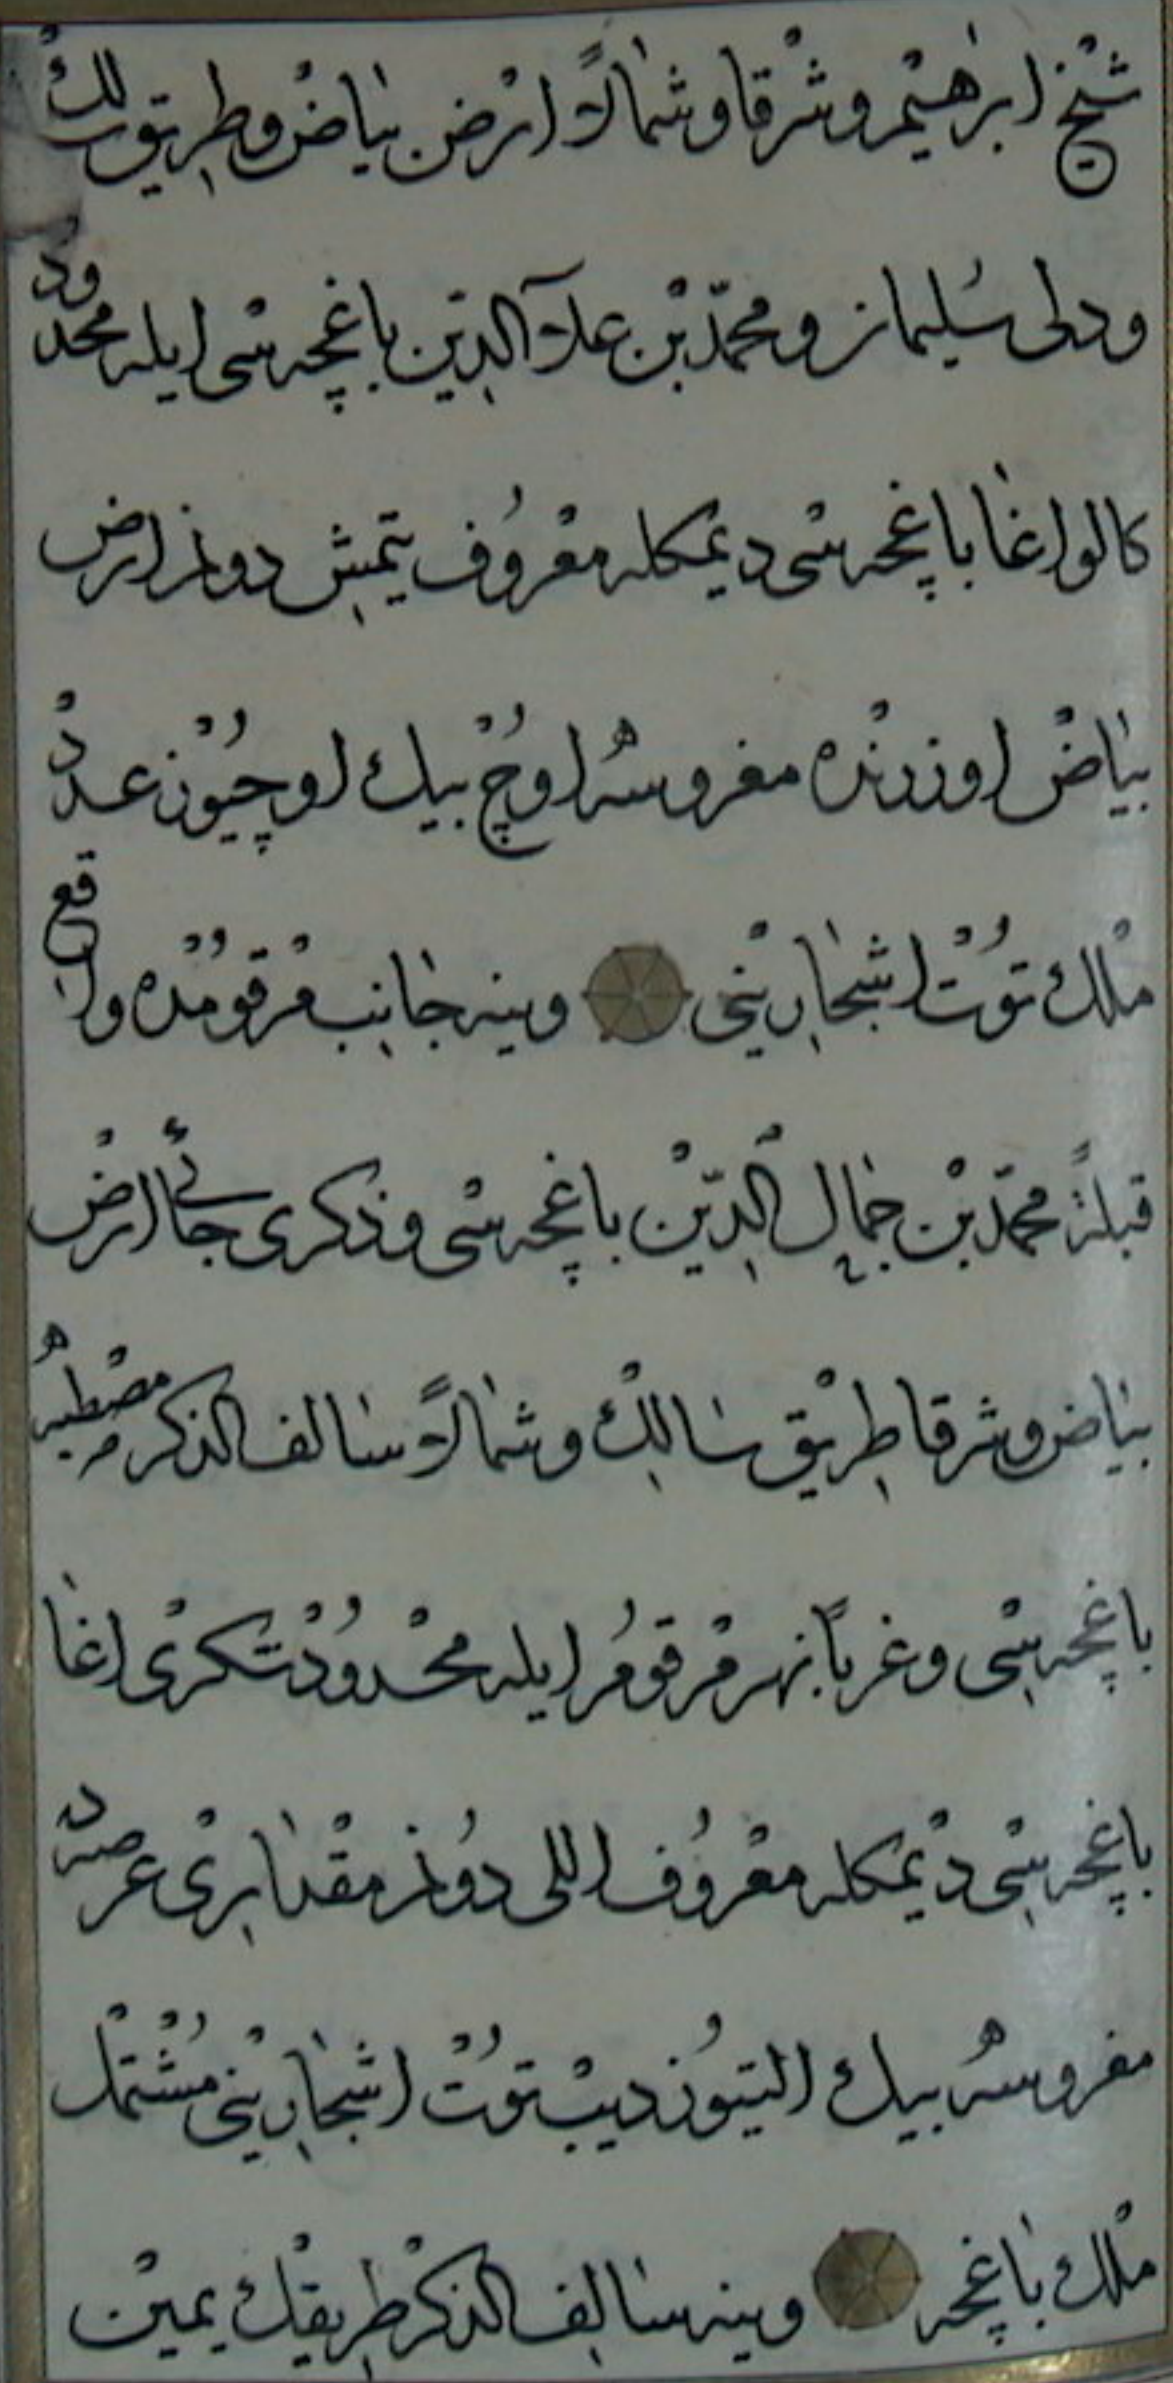 شیخ ابرهیم و شرقا و شمالاً ارض بیاض و طریق سالك
و دلی سلیمان و محمّد بن علاء الدین باغچه سی ایله محدود
كالو اغا باغچه سی دیمكله معروف یتمش دونم ارض
بیاض اوزرنده مغروسه اوچ بیك اوچیوز عدد
ملك توت اشجارینی وینه جانب مرقومده واقع
قبلةً محمّد بن جمال الدّین باغچه سی و ذكری جائی ارض
بیاض و شرقا طریق سالك و شمالاً سالف الذكر مصطبه
باغچه سی و غرباً نهر مرقوم ایله محدود تكری اغا
باغچه سی دیمكله معروف اللی دونم مقداری عرصه ده
مغروسه بیك التیوز دیب توت اشجارینی مشتمل
ملك باغچه وینه سالف الذكر طریقك یمین